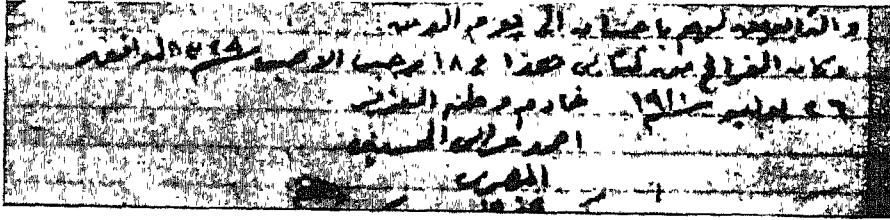 والتابعين لهم باحسان الى يوم الدين.
وكان الفراغ من كتابى هذا فى ١٨ رجب الاصب ١٣٢٨ الموافقه
٢٦ يوليه ١٩١٠ خادم وطنه العزيز
احمد عرابى الحسينى
المصرى